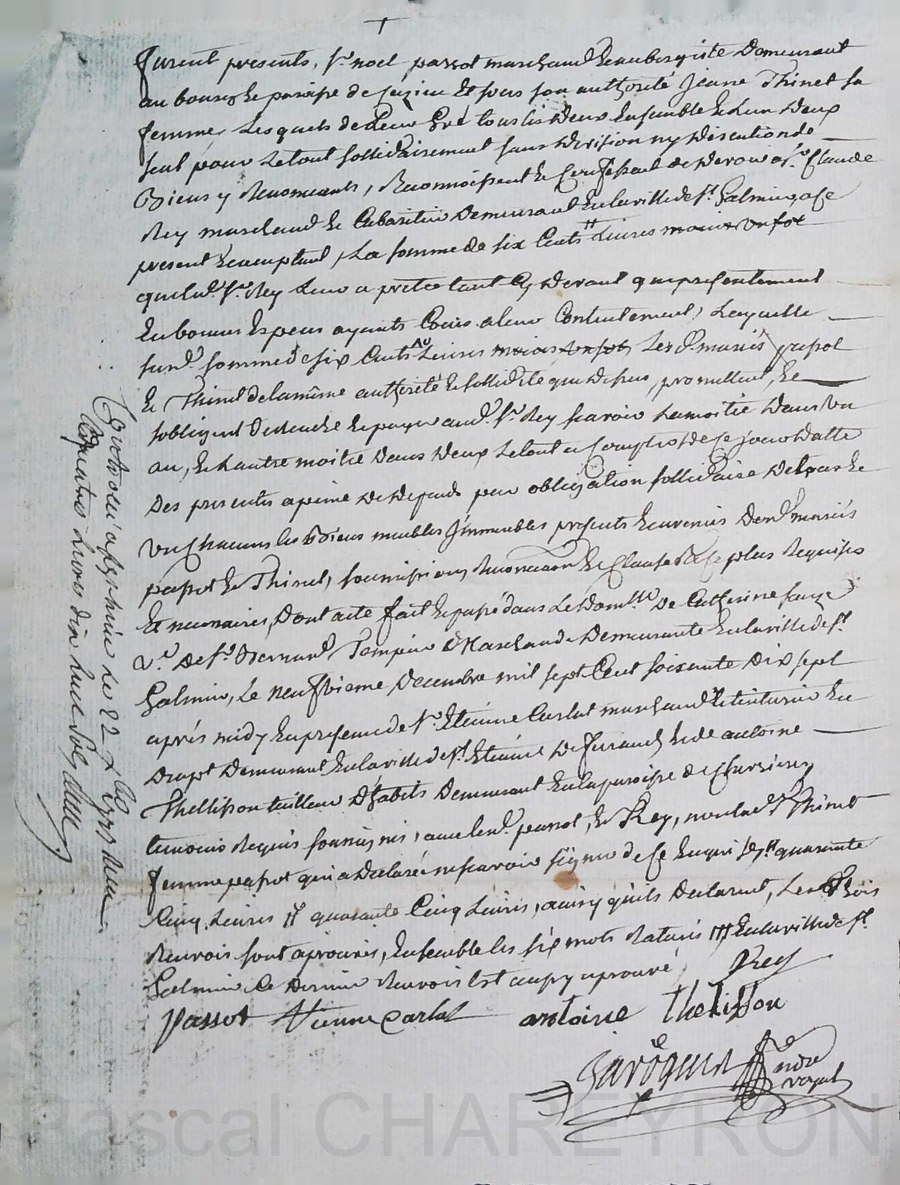 furent presents, Sr noel passot marchand et aubergiste demeurant
au bourg et paroisse de Cuzieu et sous son authorité Jeane Thinet sa
femme, Lesquels de Leur gré tous les deux Ensemble et L'un d'eux
seul pour Le tout sollidairement sans division ny discution de
Biens y Renonceants, Reconnoissent et Confessent de devoir a Sr Claude
Rey marchand et Cabaretier demeurant En la ville de St Galmier, a ce
present et acceptant, La somme de six Cents # Livres moins
que Led. Sr Rey Leur a preté tant Cy devant que presentement
En bonnes Especes ayants Cours a Leur Contentement, Laquelle
susd. somme de six Cents Livres moins Les d. mariés passot
et Thinet de la même authorité et sollidité que dessus, promettent, et
sobligent de Rendre et payer aud. Sr Rey scavoir La moitié dans un
an, et L'autre moitié dans deux Le tout a Compter de Ce jour datte
des presentes a peine de depends par obligation sollidaire de tous et
un Chacuns les Biens meubles Immeubles presents et avenirs desd. mariés
passot et Thinet, soumissions Renonciaons et Clauses a Ce plus Requises
Et necessaires, Dont acte fait et passé dans Le domlle de Catherine faure
ve de Sr Bernard Tempier Marchande demeurante En la ville de St
Galmier, Le neufvieme Decembre mil sept Cent soixante dix sept
aprés midy En presence de Sr Etienne Carlat marchand teinturier En
drap demeurant En la ville de St Etienne de furand et de antoine
Thellisson tailleur d'habits demeurant En la paroisse de
temoins Requis soussignés, avec Led. passot, et Rey, non lad. Thinet
femme passot qui a declaré ne scavoir signer de Ce Enquis # quarante
Cinq Livres # quarante Cinq Livres, ainsy qu'ils declarent, Les trois
Renvois sont aprouvés, Ensemble les six mots Raturés # En la ville de St
Galmier Ce dernier Renvoi Est aussy aprouvé Rey
passot Etienne Carlat antoine thelisson
notre
royal
Controllé a St Galmier Le 22 Xbre 1777 Reçu
quatre Livres dix huit sols
Pascal CHAREYRON